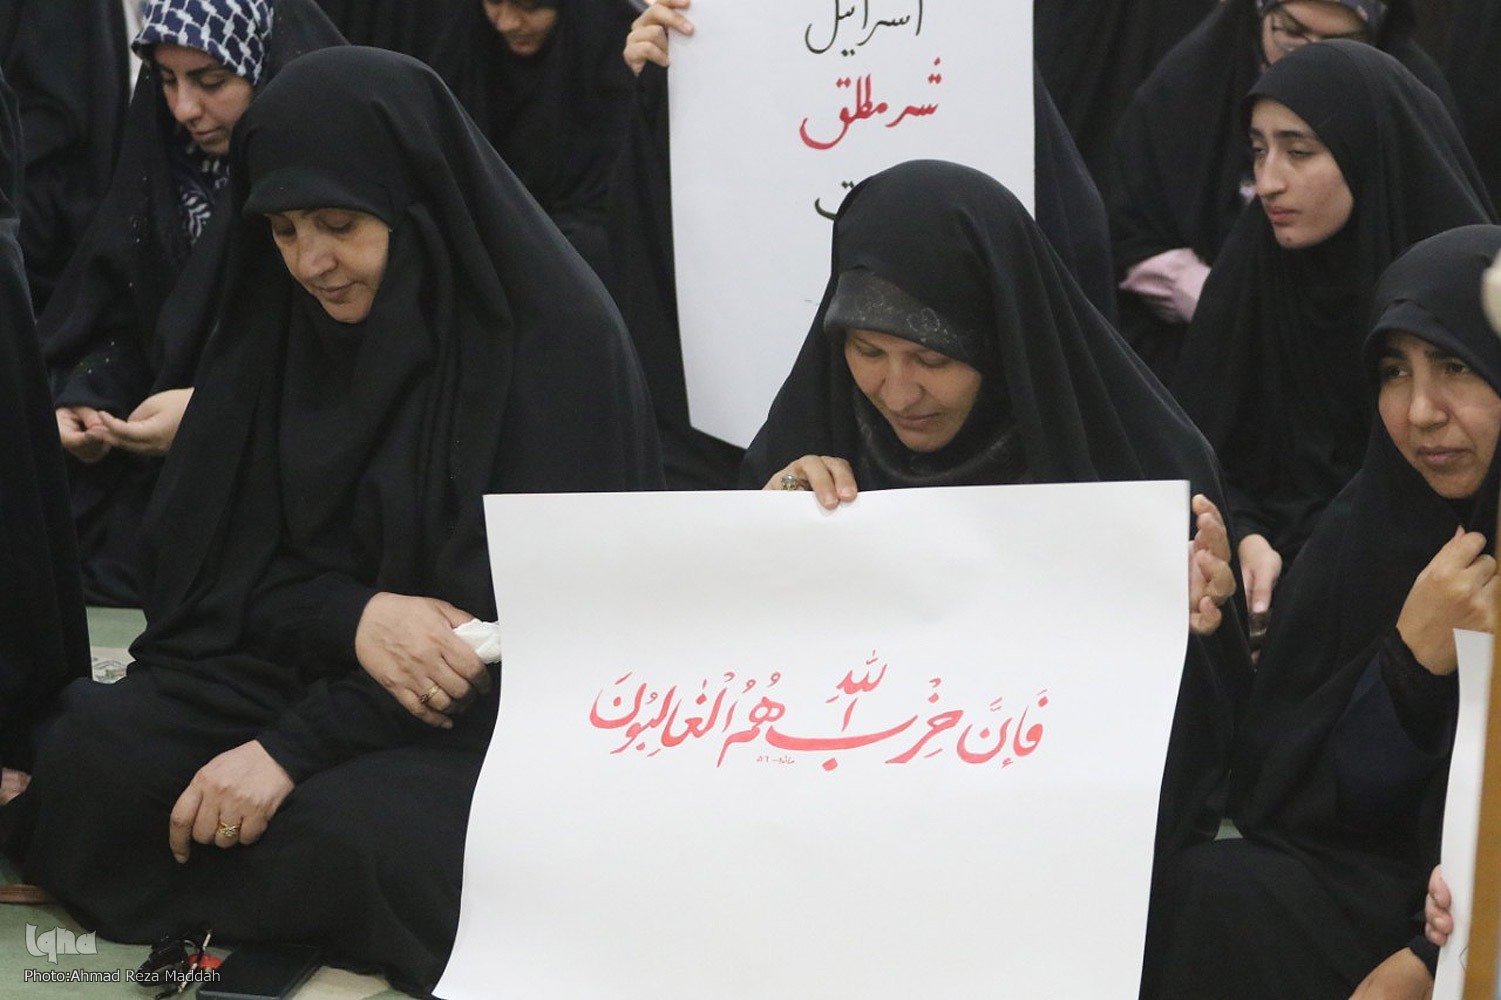 اسرائیل
شر مطلق
فَإِنَّ حِزْبَ اللهِ هُمُ الْغَالِبُونَ
مائده-۵۶
iqna
Photo:Ahmad Reza Maddah